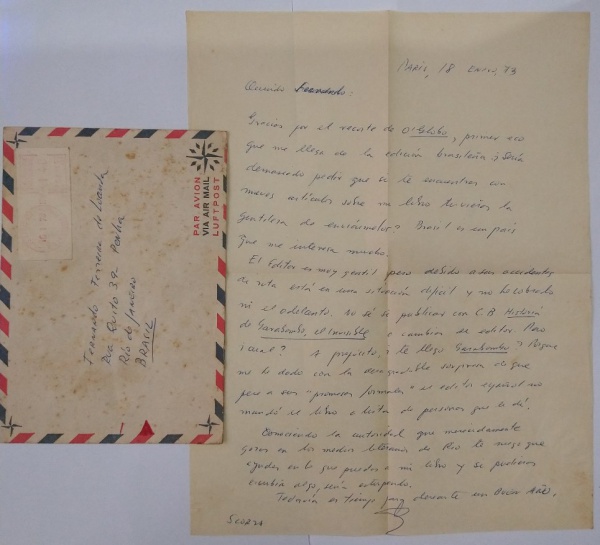 PAR AVION
VIA AIR MAIL
LUFTPOST
Fernando Ferreira de
Rua Quito 39 Penha
Rio de Janeiro
BRASIL
París, 18 Enero, 73
Querido Fernando:
Gracias por el recorte de O'Globo, primer eco
que me llega de la edición brasileña ¿Sería
demasiado pedir que si te encuentras con
nuevos artículos sobre mi libro tuvieses la
gentileza de enviármelos? Brasil es un país
que me interesa mucho.
El Editor es muy gentil pero debido a un accidente
de ruta está en una situación difícil y no he cobrado
ni el adelanto. No sé si publicar con C.B Historia
de Garabombo, el Invisible o cambiar de editor. Pero
¿cual? A propósito, ¿te llegó Garabombo? Porque
me he dado con la desagradable sorpresa de que
pese a sus "promesas formales" el editor español no
mandó el libro a listas de personas que le dí.
Conociendo la autoridad que merecidamente
gozas en los medios literarios de Rio te ruego que
ayudes en lo que puedas a mi libro y si pudieras
escribir algo, sería estupendo.
Todavía es tiempo para desearte un Buen Año.
SCORZA